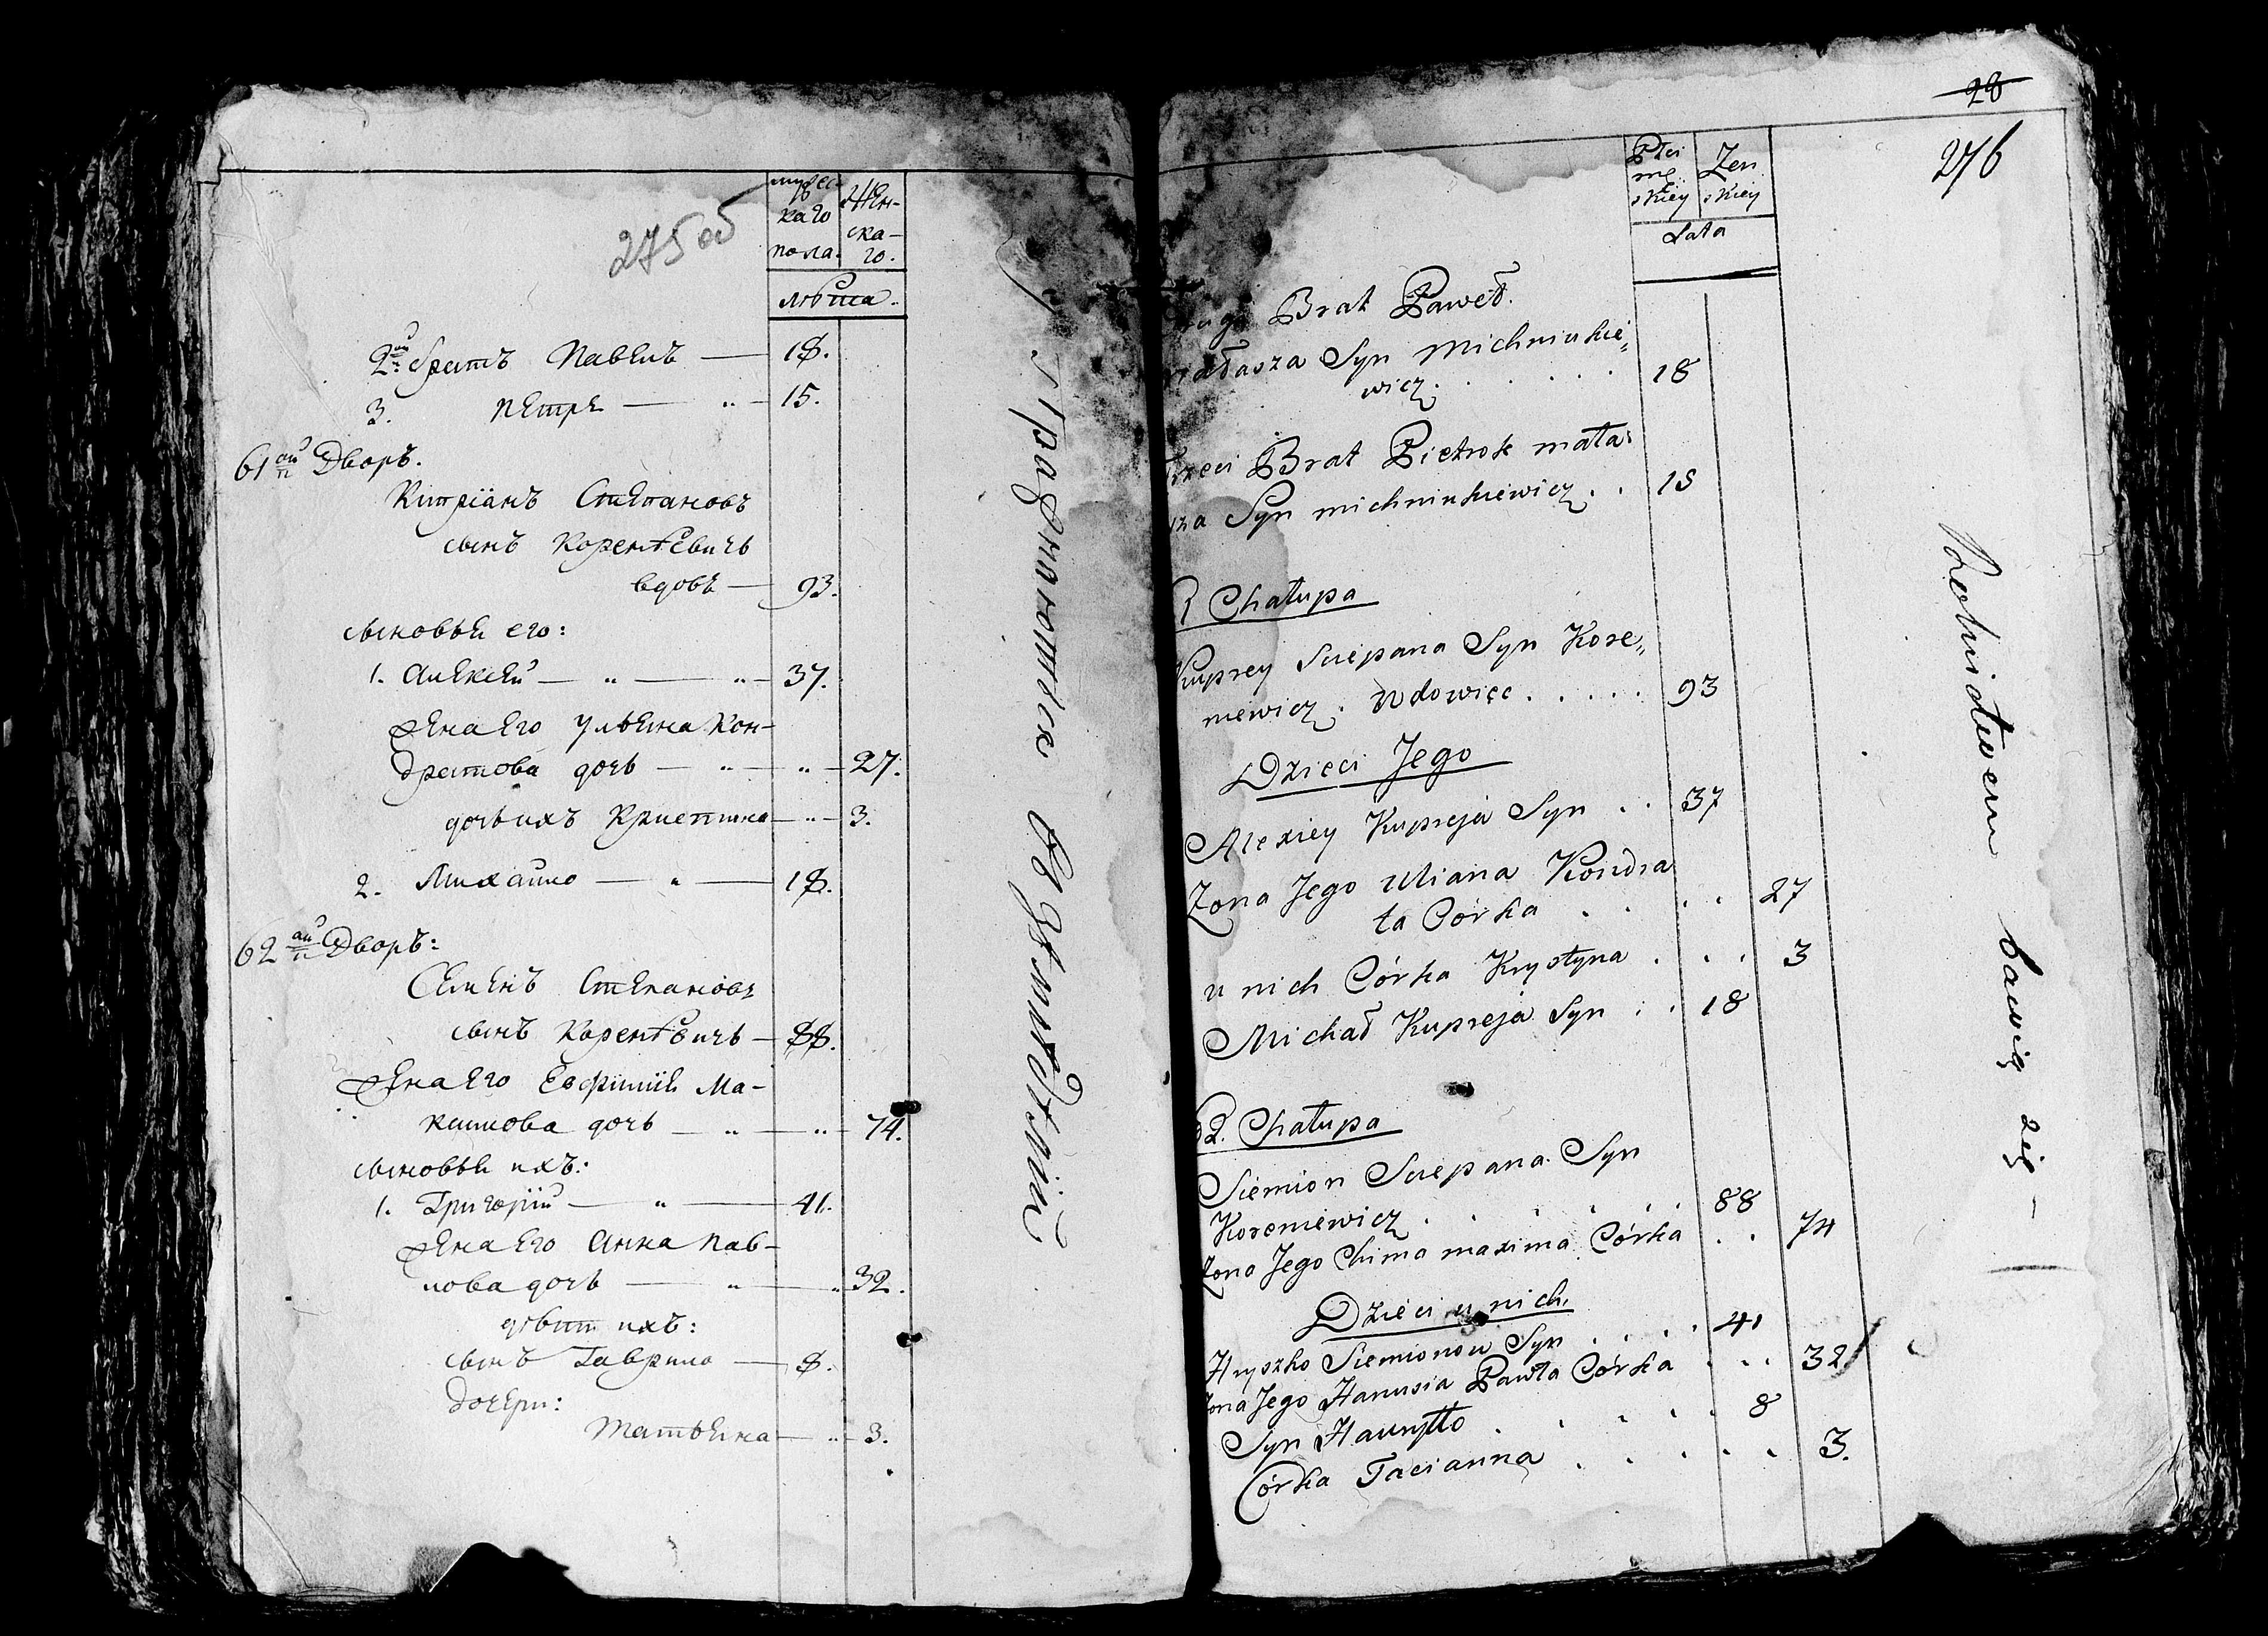 275 об
мужес-
каго
пола.
Жен-
ска-
го.
лѣта.
2й братъ Павелъ — 18.
3. Петре — „ — 15.
61й Дворъ.
Кипріанъ Степановъ
сынъ Коренѣвичъ
вдовъ — 93.
сыновья его:
1. Алексѣй — „ — „ — 37.
Жена Его Ульяна Кон-
дратова дочь — „ — „ — 27.
дочь ихъ Кристина — „ — 3.
2. Михайло — „ — 18.
62й Дворъ:
Семенъ Степановъ
сынъ Коренѣвичъ — 88.
Жена Его Евфимія Ма-
ксимова дочь — „ — „ — 74.
сыновья ихъ:
1. Григорій — „ — 41.
Жена Его Анна Пав-
лова дочь — „ — „ 32.
дѣти ихъ:
сынъ Гаврило — 8.
Дочери:
Татьяна — „ — 3.
въ земледѣліи
28
276
Płci
mę
skiey
Zen
skiey
Lata
Brat Paweł.
Syn Michniukie„
wicz . . . . . 18
Trzeci Brat Pietrok mała„
sza Syn michniukiewicz . . 15
1 Chałupa
Kuprey Sciepana Syn Kore„
niewicz . Wdowięc . . . . . 93
Dzieci Jego
Alexiey Kupreja Syn . . 37
Zona Jego Uliana Kondra
ta Córka . . . . 27
u nich Córka Krystyna . . . 3
Michał Kupreja Syn . . 18
62. Chałupa
Siemion Sciepana Syn
Koreniewicz . . . . . 88
Zona Jego Chima maxima Córka . . 74
Dzieci u nich.
Hryszko Siemionow Syn . . . . 41
Zona Jego Hanusia Pawła Córka . . . 32
Syn Hauryłło . . . . . 8
Córka Tacianna . . . . . . 3.
Rolnictwem bawią się —